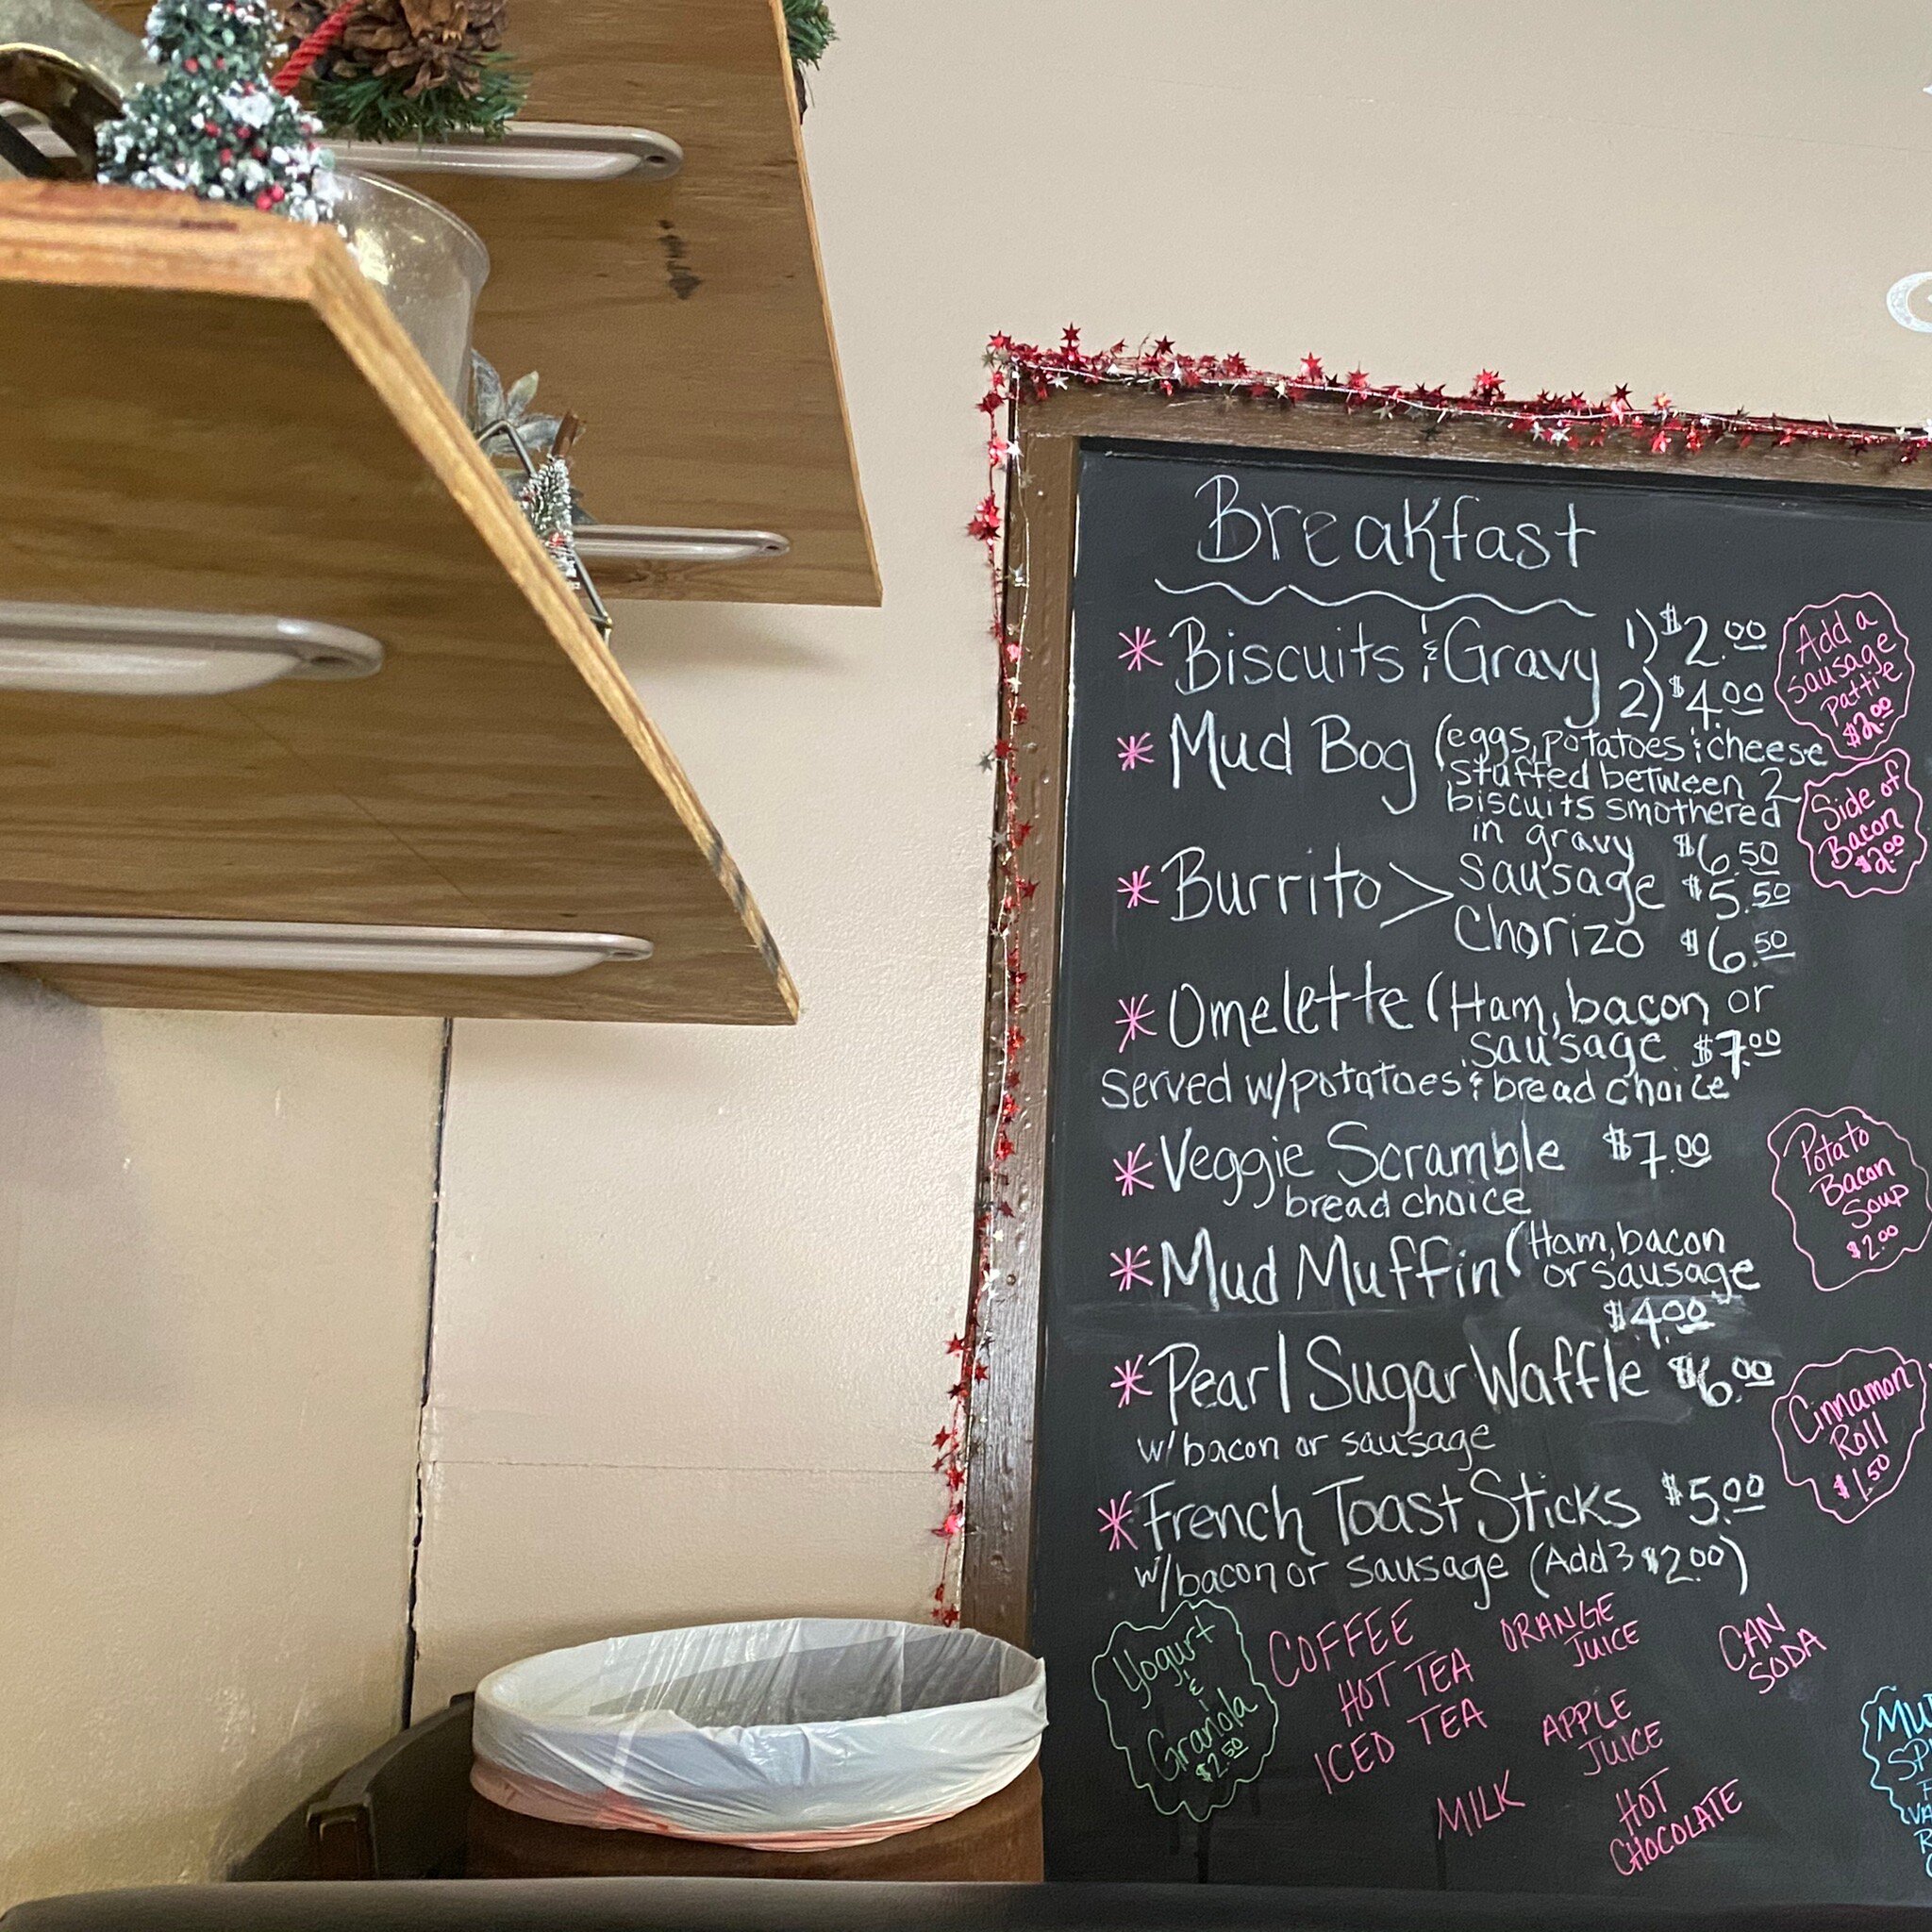 Breakfast
* Biscuits & Gravy 1) $2.00
2) $4.00
Add a
sausage
pattie
$2.00
* Mud Bog (eggs, potatoes & cheese
stuffed between 2
biscuits smothered
in gravy $6.50
Side of
Bacon
$2.00
* Burrito > sausage $5.50
Chorizo $6.50
* Omelette (Ham, bacon or
sausage $7.00
Served w/potatoes & bread choice
* Veggie Scramble $7.00
bread choice
Potato
Bacon
Soup
$2.00
* Mud Muffin (Ham, bacon
or sausage
$4.00
* Pearl Sugar Waffle $6.00
w/ bacon or sausage
Cinnamon
Roll
$1.50
* French Toast Sticks $5.00
w/bacon or sausage (Add 3 $2.00)
Yogurt
&
Granola
$2.50
COFFEE
HOT TEA
ICED TEA
MILK
ORANGE
JUICE
APPLE
JUICE
HOT
CHOCOLATE
CAN
SODA